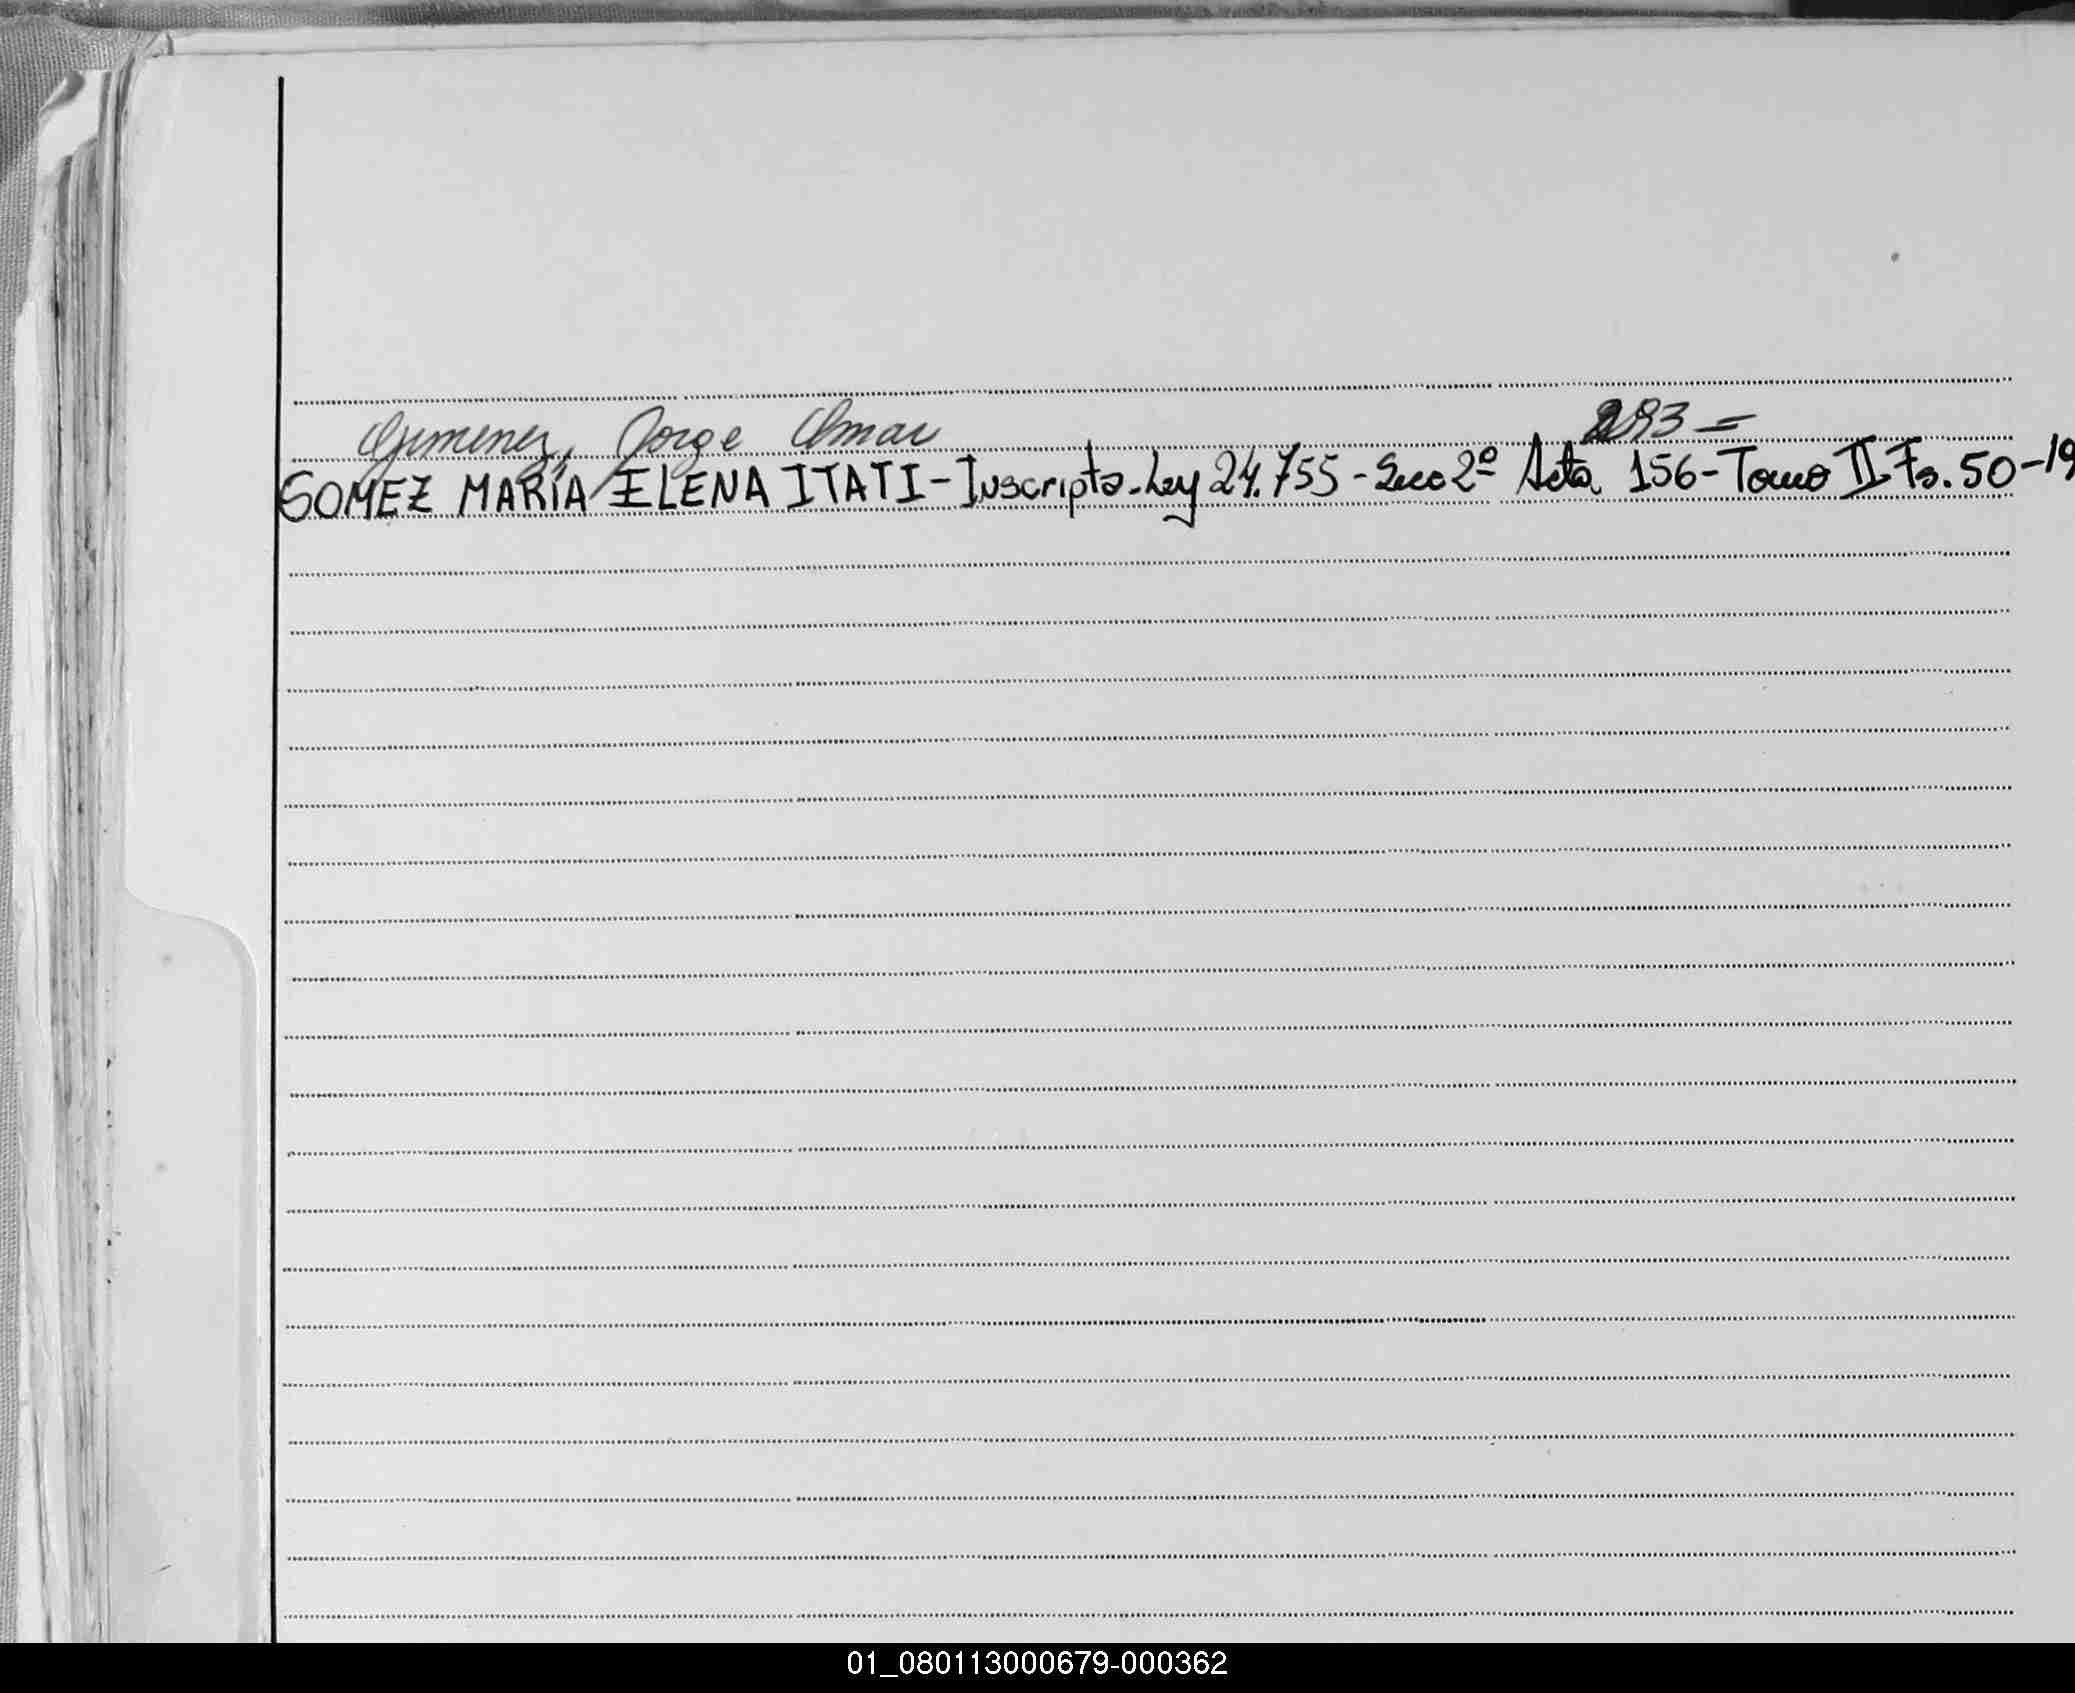 Gimenez, Jorge Omar 293 =
GOMEZ MARÍA ELENA ITATI - Inscripta - Ley 24.755 - Secc 2º Acta 156 - Tomo II Fs. 50 - 19
01_080113000679-000362